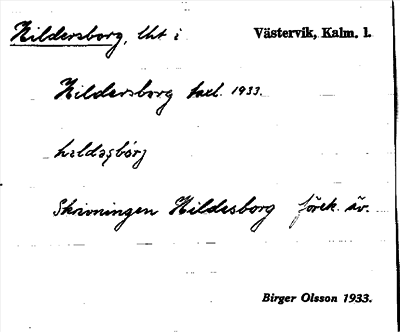 Hildersborg, lht i Västervik, Kalm. l.
Hildersborg taxl. 1933.
hıldaʂbórj
Skrivningen Hildesborg förek. äv.
Birger Olsson 1933.